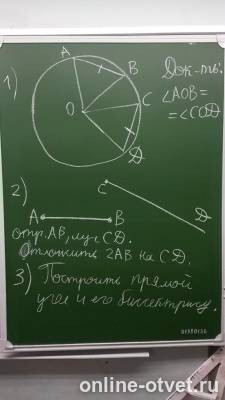 1)
A
B
C
O
D
Док-ть:
∠AOB=
=∠COD
2)
C
A B
D
отр. AB, луч CD.
Отложить 2AB на CD.
3) Построить прямой
угол и его биссектрису.
online-otvet.ru